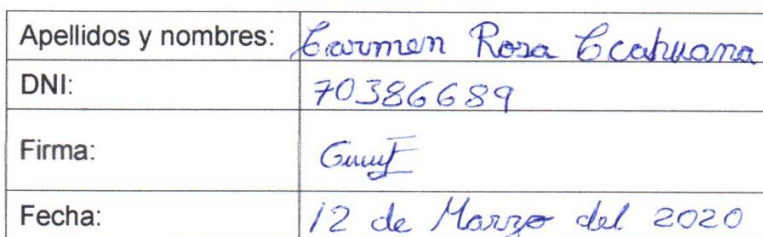 Apellidos y nombres: Carmen Rosa Ccahuana
DNI: 70386689
Firma:
Fecha: 12 de Marzo del 2020